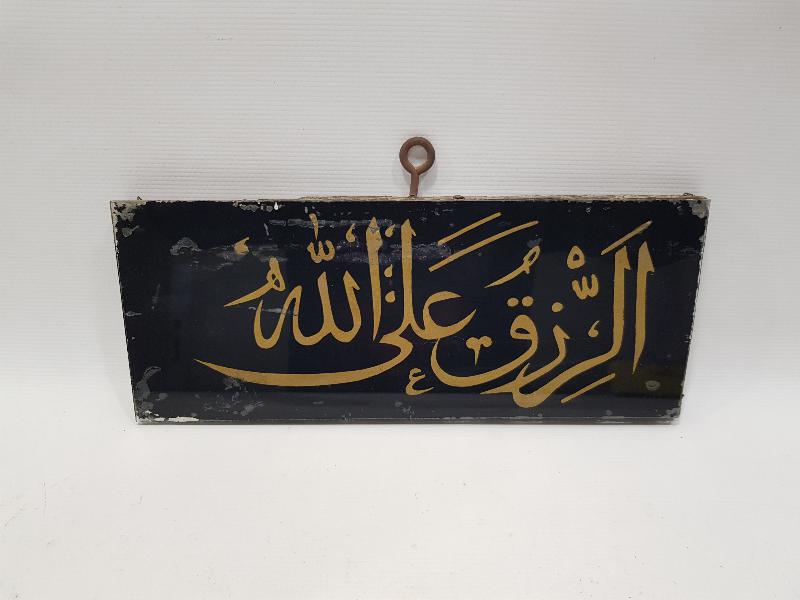 الرِّزقُ عَلَى اللّٰهُ